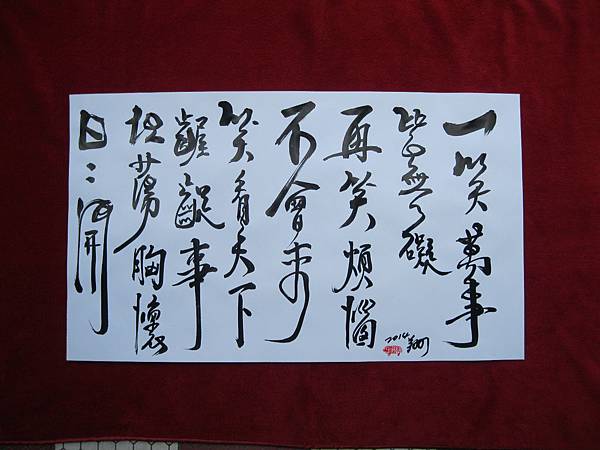 一笑萬事
皆無礙
再笑煩惱
不會來
笑看天下
齷齪事
坦蕩胸懷
日〻開
2014